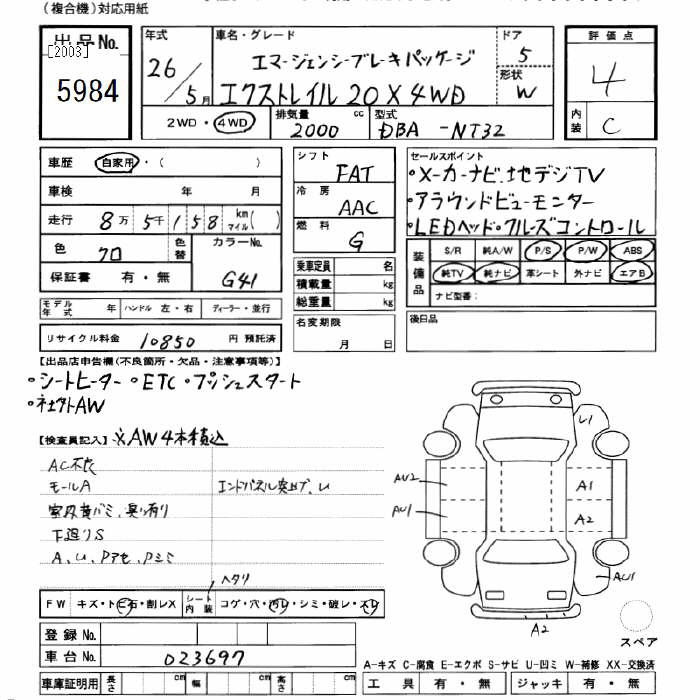 (複合機)対応用紙
出品No.
[2003]
5984
年式
26/5月
車名・グレード
エマージェンシーブレーキパッケージ
エクストレイル 20X 4WD
ドア
5
形状
W
評価点
4
内装
C
2WD・4WD
排気量
2000 cc
型式
DBA -NT32
車歴 自家用・( )
車検 年 月
走行 8万5千158 km マイル( )
色 クロ
色替
カラーNo.
G41
保証書 有・無
モデル年式 年 ハンドル 左・右 ディーラー・並行
リサイクル料金 10850 円 預託済
シフト
FAT
冷房
AAC
燃料
G
乗車定員 名
積載量 kg
総重量 kg
名変期限
月 日
セールスポイント
・メーカーナビ、地デジTV
・アラウンドビューモニター
・LEDヘッド・クルーズコントロール
装備品
S/R 純A/W P/S P/W ABS
純TV 純ナビ 革シート 外ナビ エアB
ナビ型番:
後日品
【出品店申告欄(不良箇所・欠品・注意事項等)】
・シートヒーター ・ETC・プッシュスタート
・社外AW
【検査員記入】 ※AW4本積込
AC不良
モールA
エンドパネル突上ブ、U
室内黄バミ、臭い有り
下廻りS
A、U、Pアセ、Pシミ
ヘタリ
FW キズ・トビ石・割レX
シート内装 コゲ・穴・汚レ・シミ・破レ・スレ
登録No.
車台No. 023697
車庫証明用 長さ cm 幅 cm 高さ cm
U1
AU2
A1
AU1
A2
AU1
A2
スペア
A-キズ C-腐食 E-エクボ S-サビ U-凹ミ W-補修 XX-交換済
工具 有・無 ジャッキ 有・無